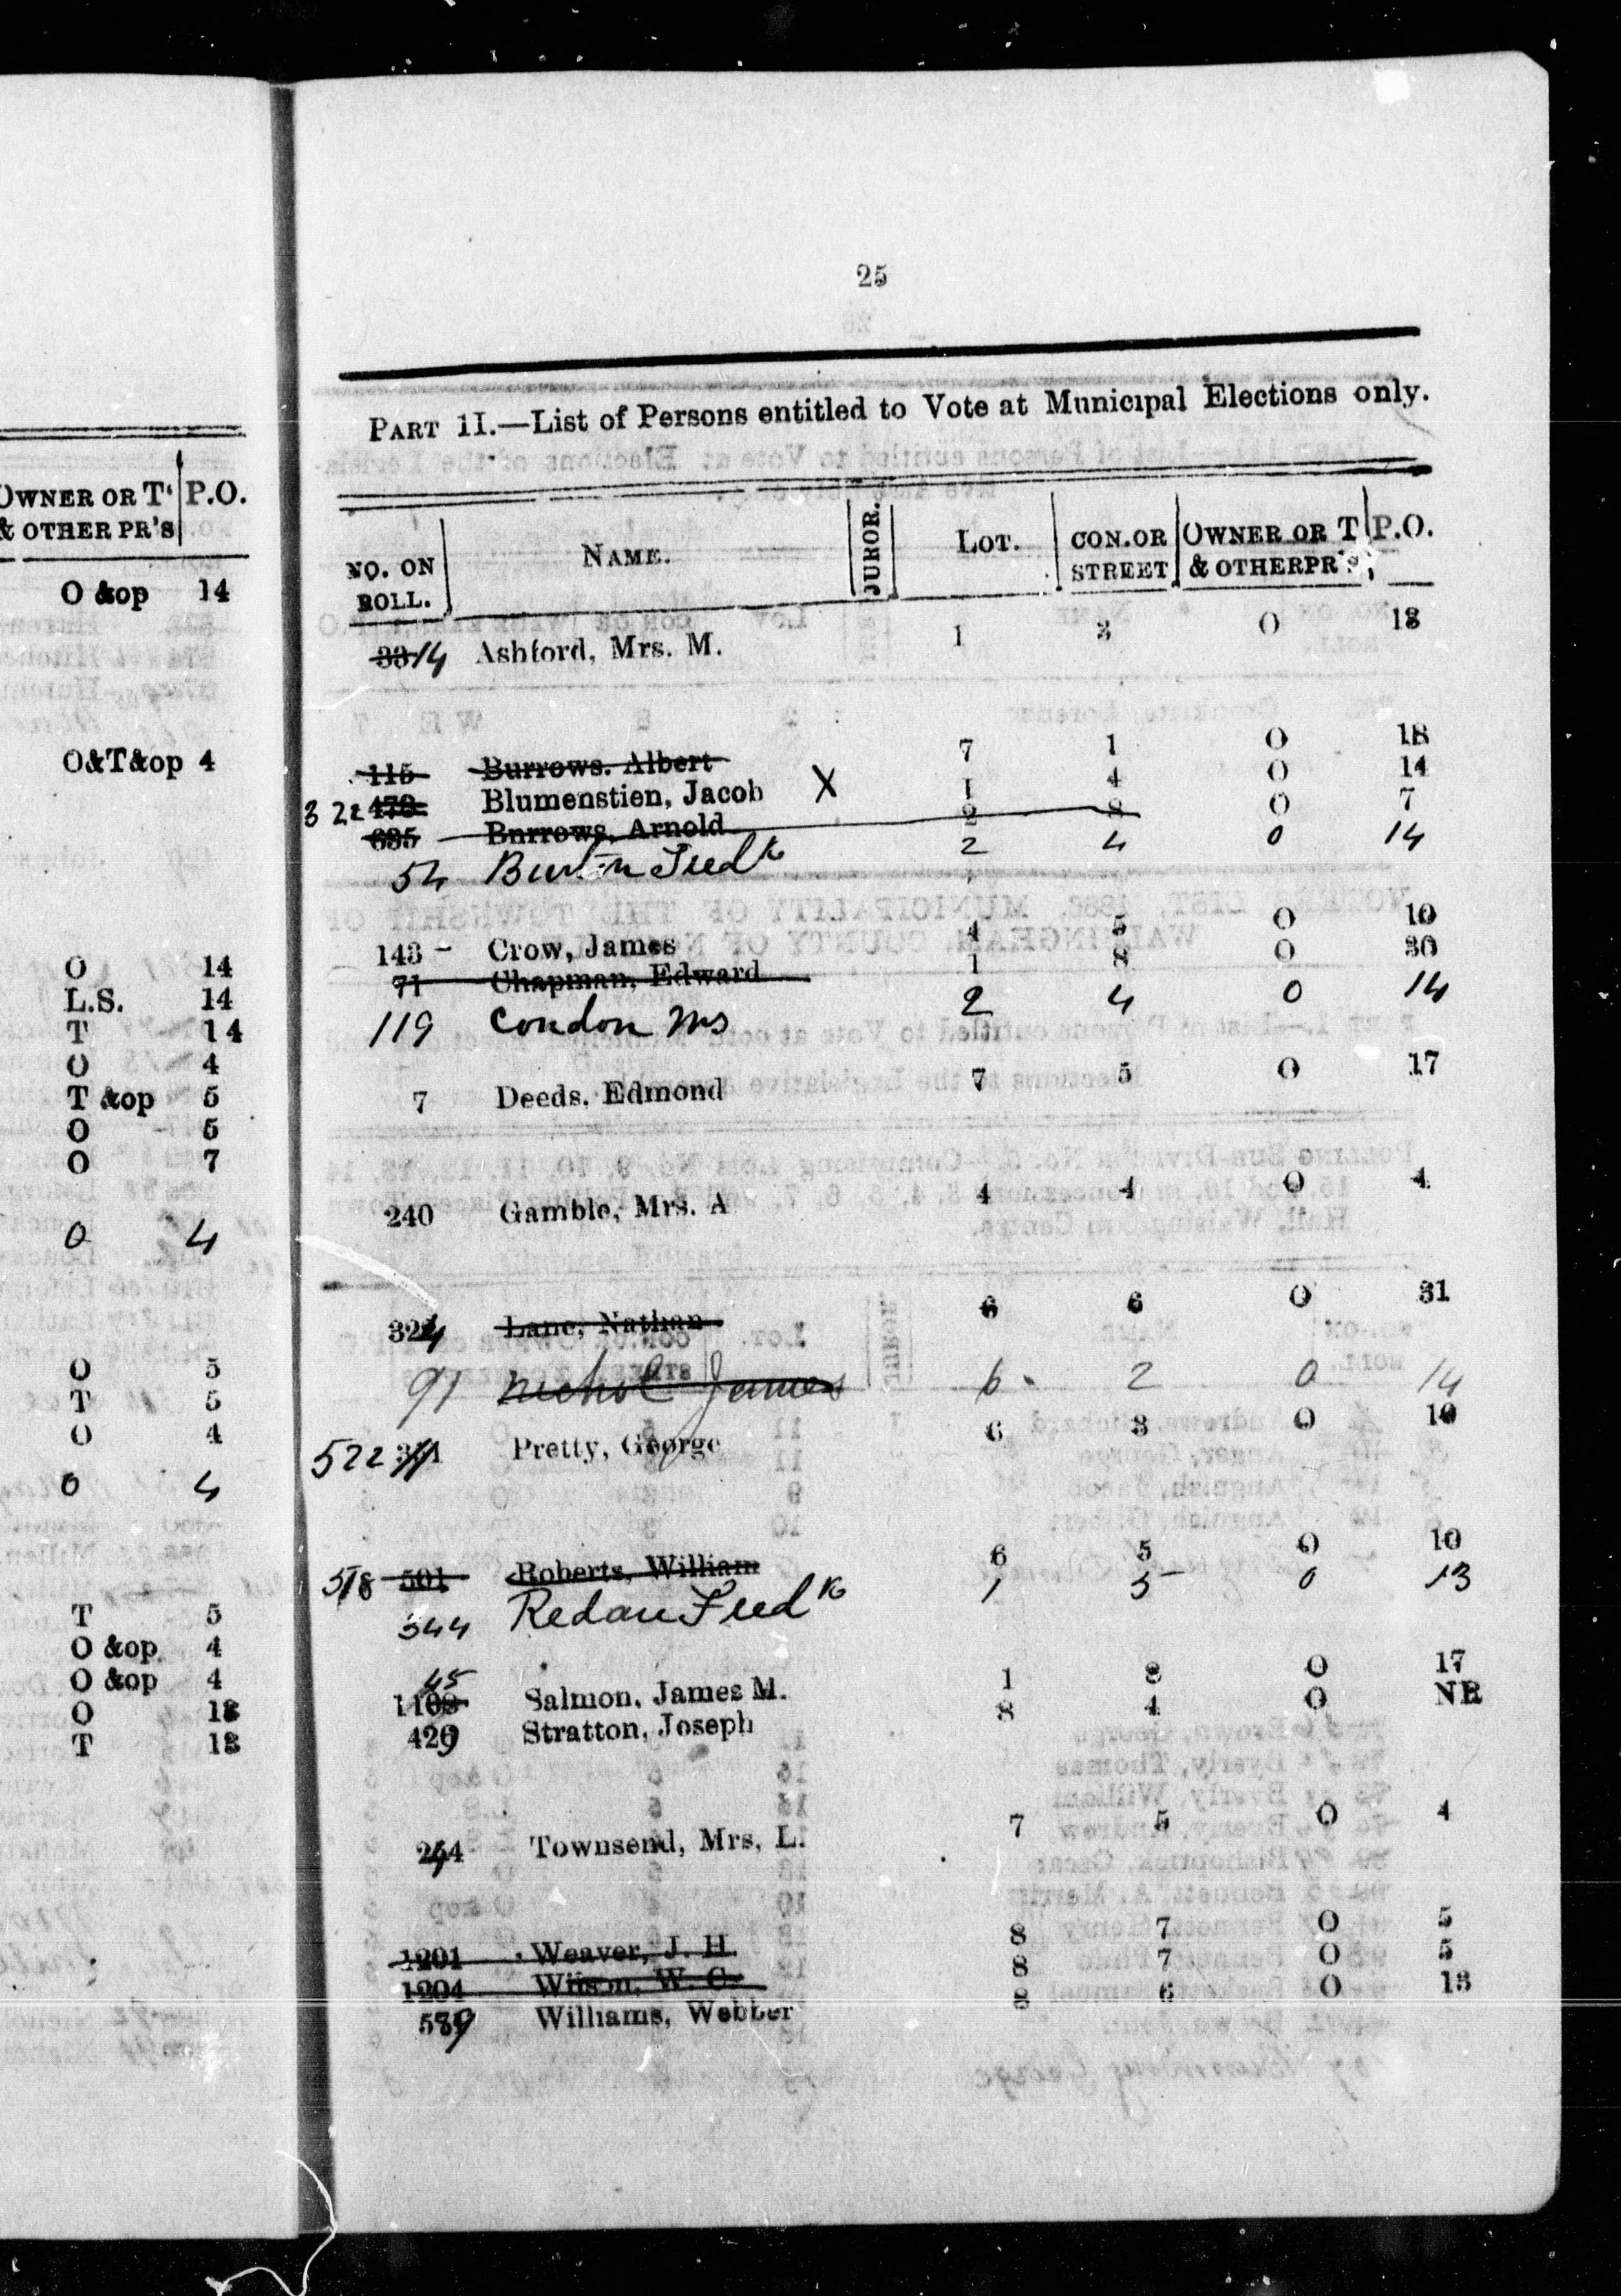 OWNER OR T' P.O.
& OTHER PR'S
O &op 14
O&T&op 4
O 14
L.S. 14
T 14
O 4
T &op 5
O 5
O 7
O 4
O 5
T 5
O 4
O 4
T 5
O &op 4
O &op 4
O 13
T 13
25
PART 1I.—List of Persons entitled to Vote at Municipal Elections only.
NO. ON ROLL. NAME. JUROR. LOT. CON. OR STREET OWNER OR T & OTHER PR'S P.O.
14 Ashford, Mrs. M. 1 3 O 13
115 Burrows. Albert 7 1 O 18
322 Blumenstien, Jacob X 1 4 O 14
685 Bnrrows, Arnold 2 8 O 7
54 Fredk 2 4 0 14
143 - Crow, James 4 5 O 10
71 Chapman, Edward 1 8 O 30
119 Condon Mrs 2 4 0 14
7 Deeds, Edmond 7 5 O 17
240 Gamble, Mrs. A 4 4 O 4
324 Lane, Nathan 6 6 O 31
91 Nichol James 6 2 0 14
522 Pretty, George 6 3 O 10
518 501 Roberts, William 6 5 O 10
344 Redau Fredk 1 5 0 13
1145 Salmon, James M. 1 8 O 17
429 Stratton, Joseph 8 4 O NR
Townsend, Mrs, L. 7 5 O 4
1201 Weaver, J. H. 8 7 O 5
1204 Wilson, W. C. 8 7 O 5
589 Williams, Webber 8 6 O 13